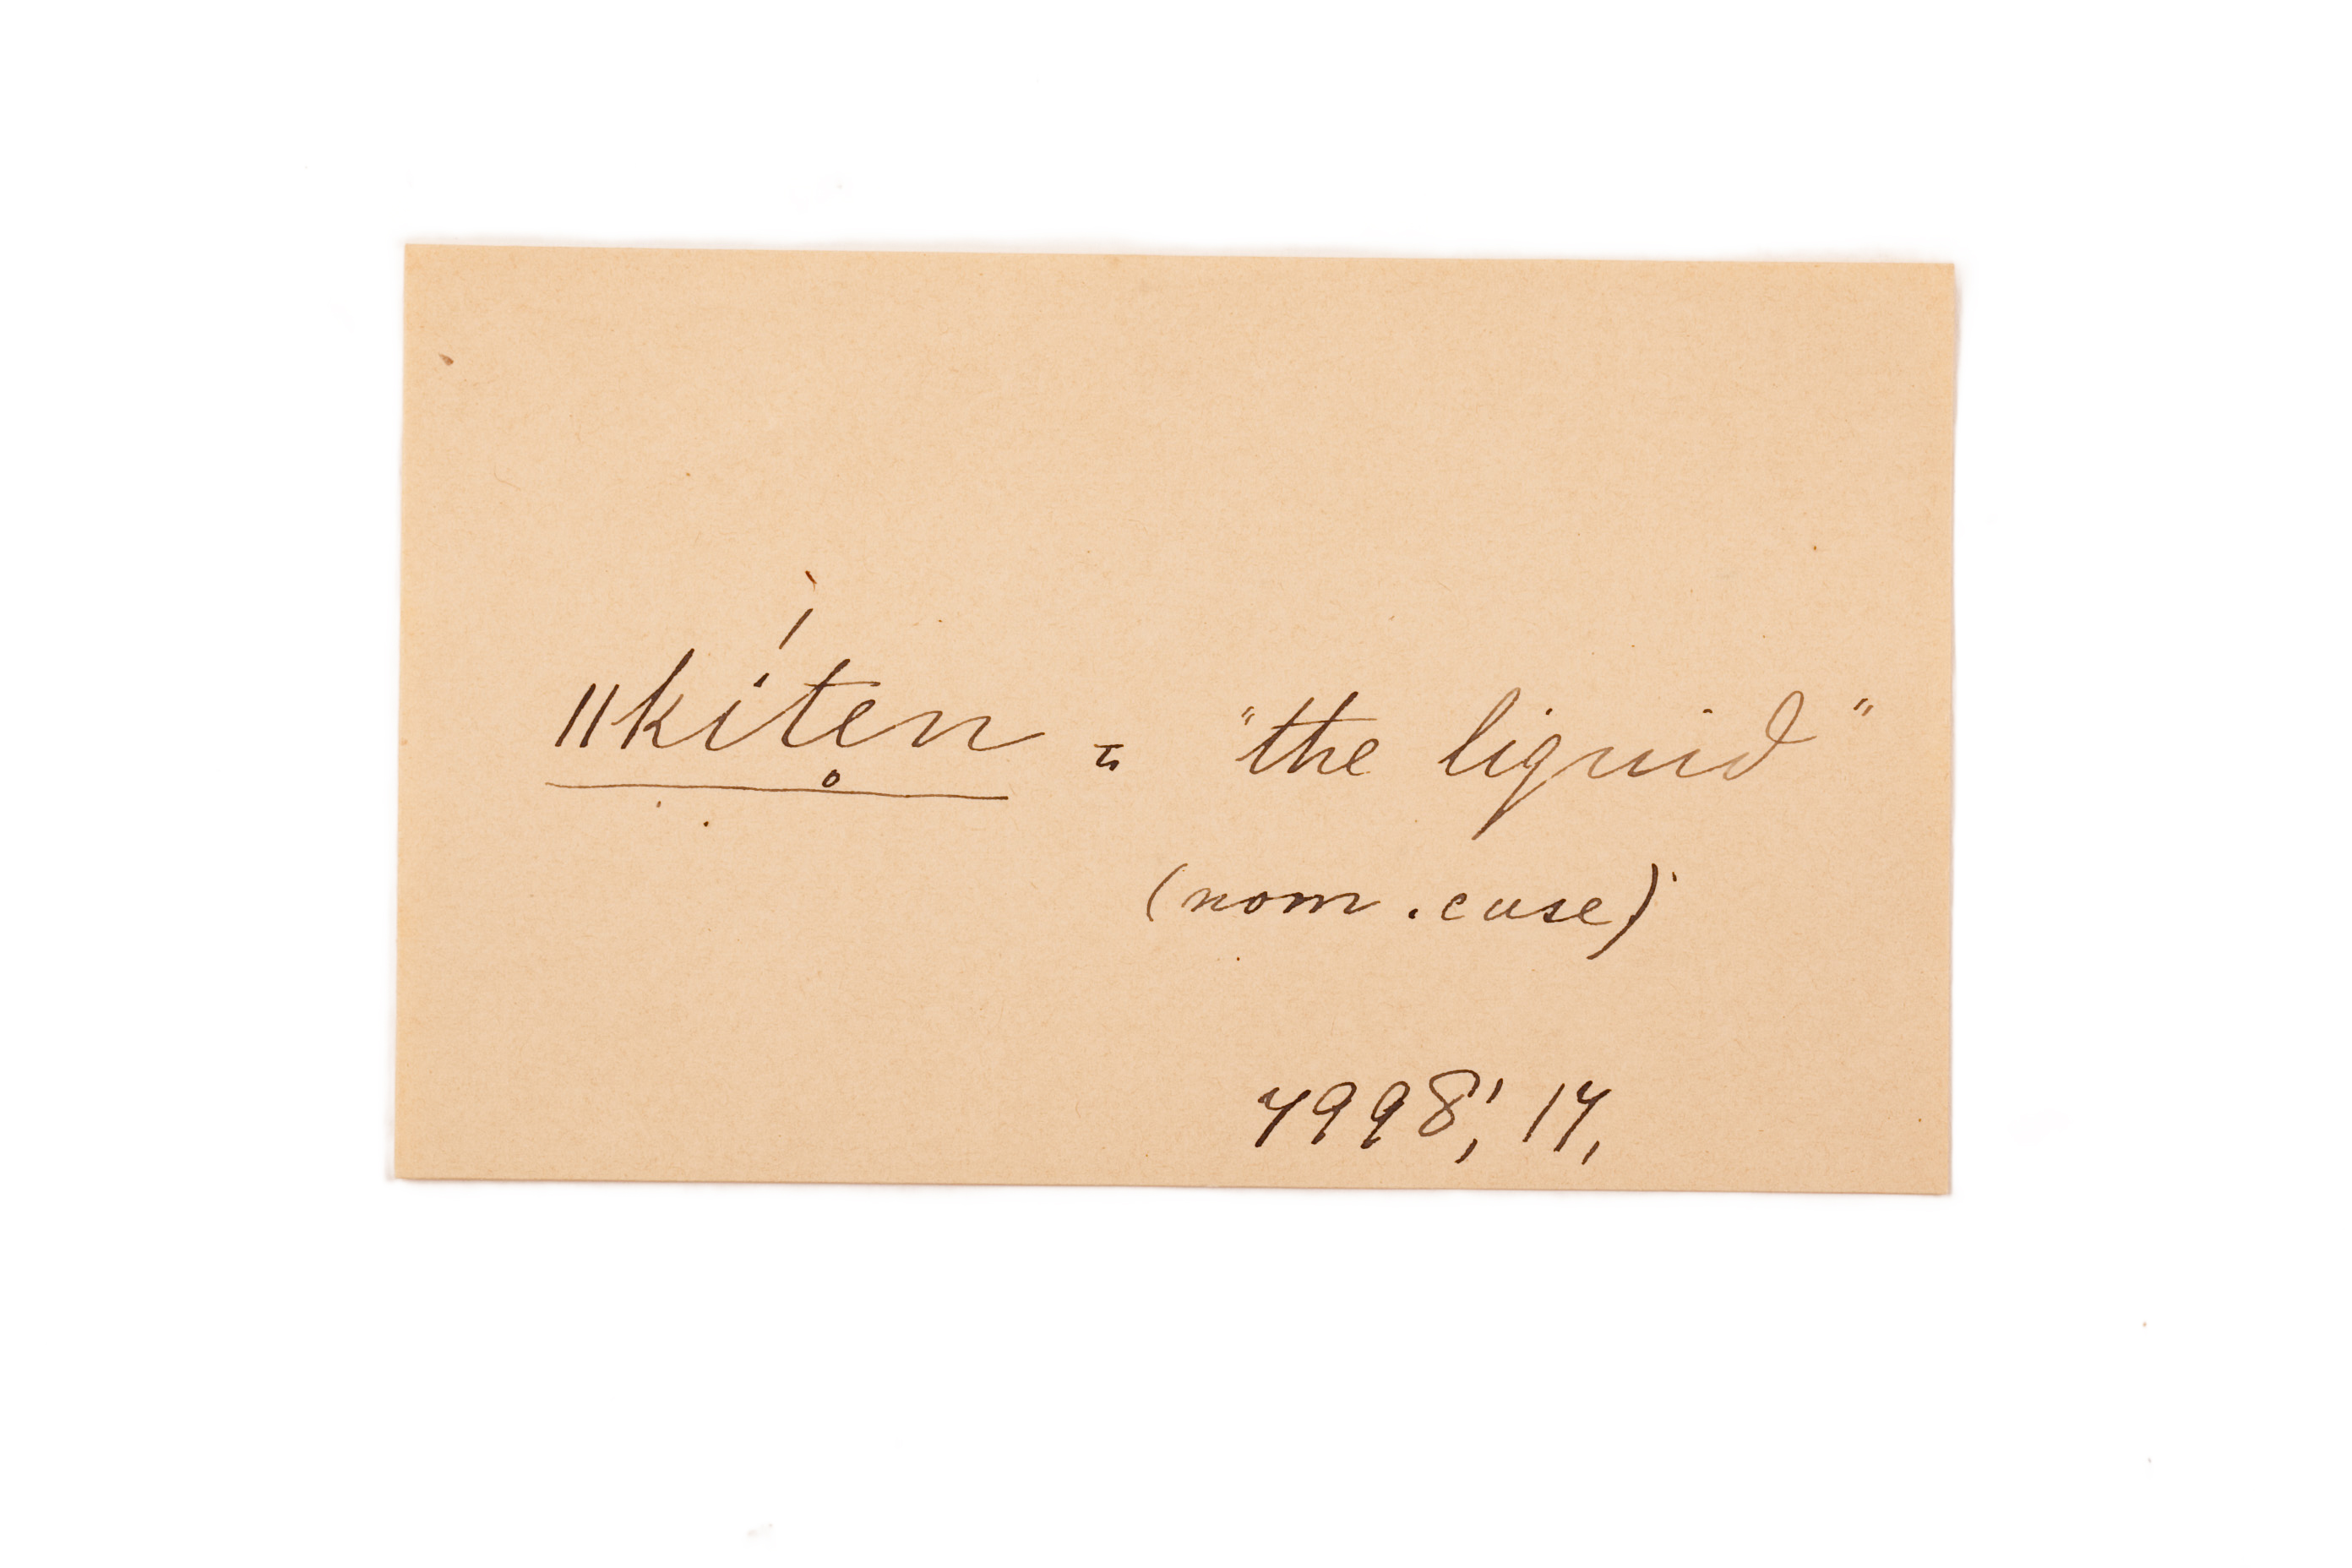 ǁkíte̥n = "the liquid"
(nom. case)
7998', 17.